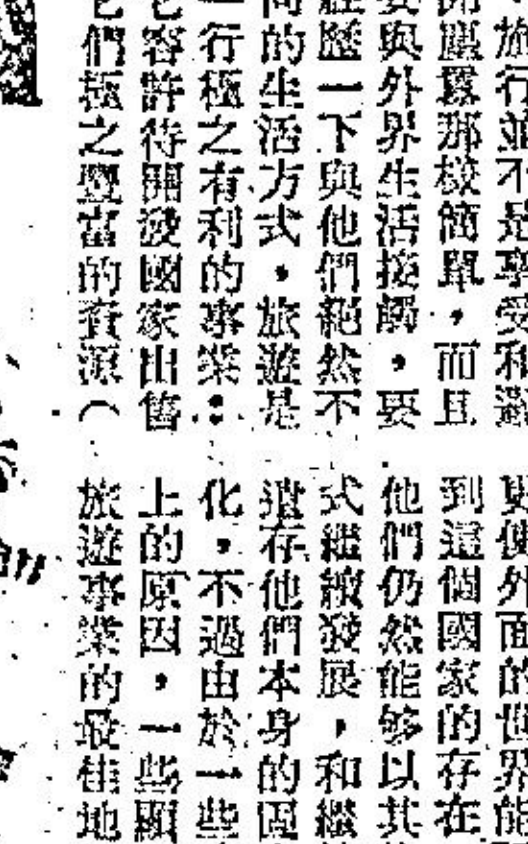 旅行並不是享受和避
開塵囂那麽簡單，而且
要與外界生活接觸，要
經歷一下與他們絕然不
同的生活方式，旅遊是
一行極之有利的事業：
它容許待開發國家出售
它們極之豐富的資源（
更使外面的世界能
到這個國家的存在
他們仍然能够以其
式繼續發展，和繼
遺存他們本身的固
化，不過由於一些
上的原因，一些顯
旅遊事業的最佳地